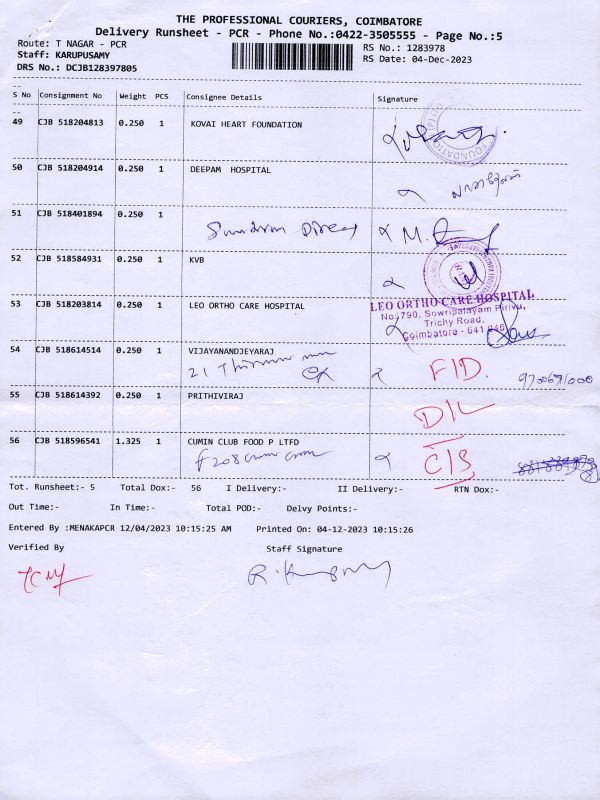 THE PROFESSIONAL COURIERS, COIMBATORE
Delivery Runsheet - PCR - Phone No.:0422-3505555 - Page No.:5
Route: T NAGAR - PCR RS No.: 1283978
Staff: KARUPUSAMY RS Date: 04-Dec-2023
DRS No.: DCJB128397805
S No Consignment No Weight PCS Consignee Details Signature
49 CJB 518204813 0.250 1 KOVAI HEART FOUNDATION
FOUNDATION
50 CJB 518204914 0.250 1 DEEPAM HOSPITAL
51 CJB 518401894 0.250 1
Sundram Direct
52 CJB 518584931 0.250 1 KVB
53 CJB 518203814 0.250 1 LEO ORTHO CARE HOSPITAL
LEO ORTHO CARE HOSPITAL
No: 790, Sowripalayam Pirivu,
Trichy Road,
Coimbatore - 641 045
54 CJB 518614514 0.250 1 VIJAYANANDJEYARAJ
21 F/D.
55 CJB 518614392 0.250 1 PRITHIVIRAJ
D/L
56 CJB 518596541 1.325 1 CUMIN CLUB FOOD P LTFD
F 208 cumin C/S
Tot. Runsheet:- 5 Total Dox:- 56 I Delivery:- II Delivery:- RTN Dox:-
Out Time:- In Time:- Total POD:- Delvy Points:-
Entered By :MENAKAPCR 12/04/2023 10:15:25 AM Printed On: 04-12-2023 10:15:26
Verified By Staff Signature